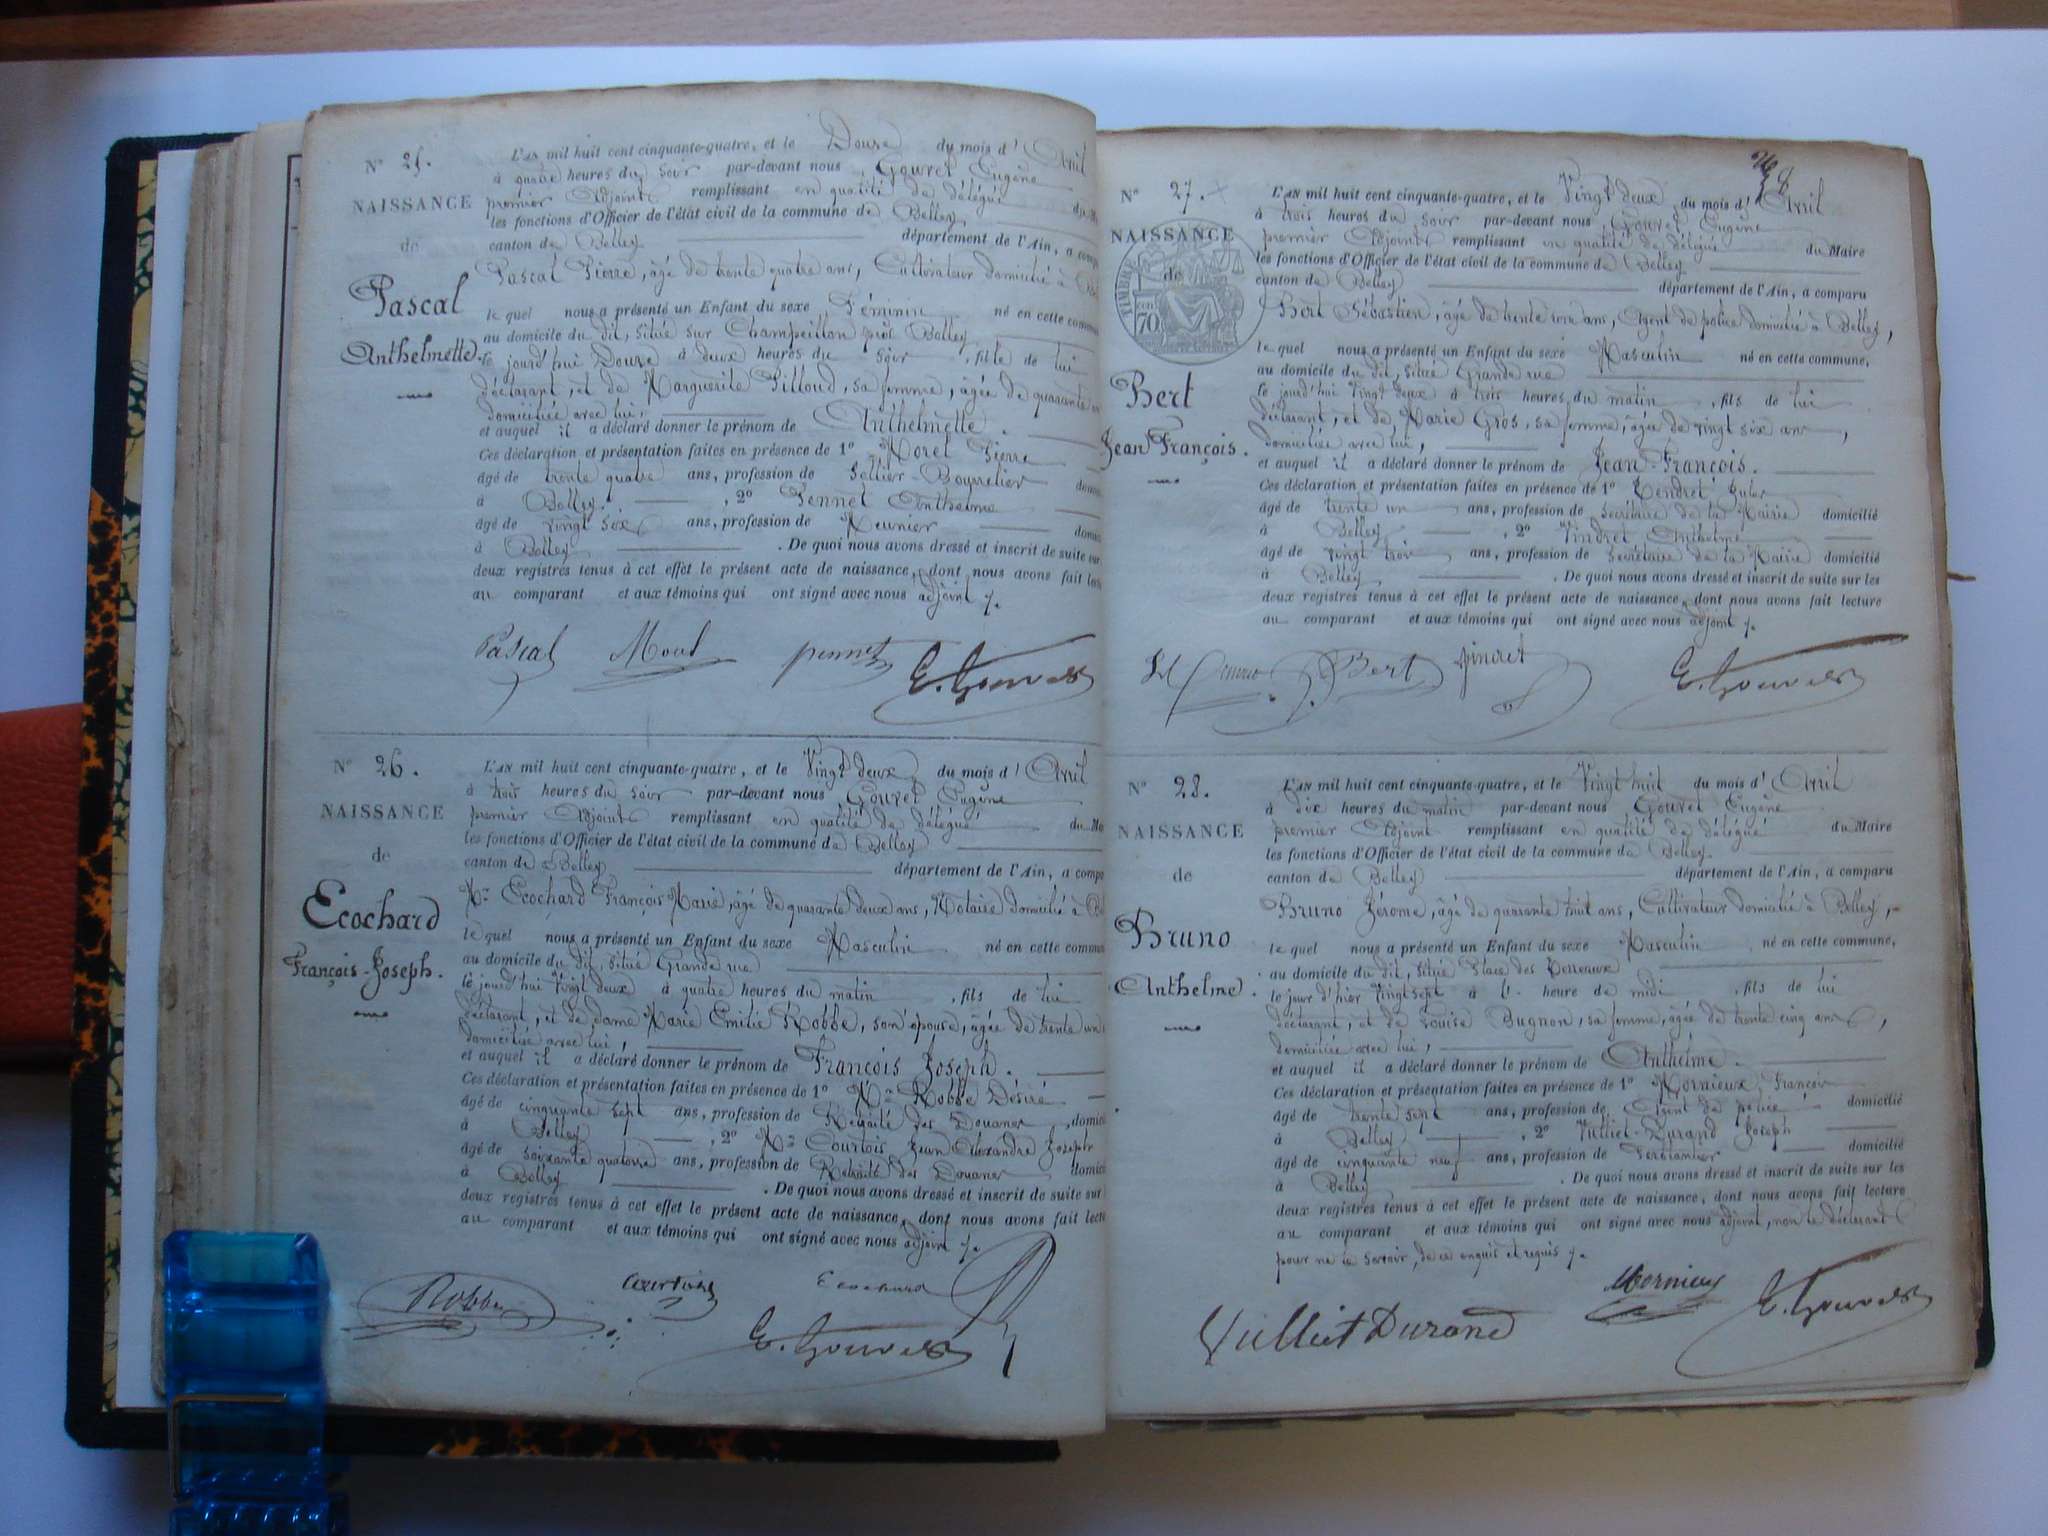 N° 25.
NAISSANCE
de
Pascal
Anthelmette.
L'AN mil huit cent cinquante-quatre, et le Douze du mois d'Avril
à quatre heures du soir par-devant nous Gouvet Eugène
premier Adjoint remplissant en qualité de délégué
les fonctions d'Officier de l'état civil de la commune de Belley
canton de Belley département de l'Ain, a comp
Pascal Pierre, âgé de trente quatre ans, Cultivateur domicilié à
le quel nous a présenté un Enfant du sexe Féminin né en cette commu
au domicile du dit, situé sur Champeillon près Belley
le jourd'hui Douze à deux heures du soir, fille de lui
déclarant, et de Marguerite Billoud, sa femme, âgée de quarante
domiciliée avec lui,
et auquel il a déclaré donner le prénom de Anthelmette.
Ces déclaration et présentation faites en présence de 1° Morel Pierre
âgé de trente quatre ans, profession de Sellier-Bourrelier
à Belley, 2° Pennet Anthelme
âgé de vingt six ans, profession de Meunier
à Belley. De quoi nous avons dressé et inscrit de suite sur
deux registres tenus à cet effet le présent acte de naissance, dont nous avons fait lect
au comparant et aux témoins qui ont signé avec nous adjoint
Pascal Morel pennet E. Gouvet
N° 26.
NAISSANCE
de
Ecochard
François-Joseph.
L'AN mil huit cent cinquante-quatre, et le Vingt deux du mois d'Avril
à trois heures du soir par-devant nous Gouvet Eugène
premier Adjoint remplissant en qualité de délégué du Ma
les fonctions d'Officier de l'état civil de la commune de Belley
canton de Belley département de l'Ain, a compa
Mr Ecochard François Marie, âgé de quarante deux ans, Notaire domicilié à Be
le quel nous a présenté un Enfant du sexe Masculin né en cette commun
au domicile du dit, situé Grande rue
le jourd'hui Vingt deux à quatre heures du matin, fils de lui
déclarant, et de dame Marie Emilie Robbe, son épouse, âgée de trente un
domiciliée avec lui,
et auquel il a déclaré donner le prénom de François Joseph.
Ces déclaration et présentation faites en présence de 1° Mr Robbe Désiré
âgé de cinquante sept ans, profession de Retraité des Douanes, domici
à Belley, 2° Mr Courtois Jean Alexandre Joseph
âgé de soixante quatorze ans, profession de Retraité des Douanes domici
à Belley. De quoi nous avons dressé et inscrit de suite sur
deux registres tenus à cet effet le présent acte de naissance, dont nous avons fait lectu
au comparant et aux témoins qui ont signé avec nous adjoint
Robbe Courtois Ecochard
E. Gouvet
N° 27.
NAISSANCE
de
TIMBRE
70
Bert
Jean François.
L'AN mil huit cent cinquante-quatre, et le Vingt deux du mois d'Avril
à trois heures du soir par-devant nous Gouvet Eugène
premier Adjoint remplissant en qualité de délégué du Maire
les fonctions d'Officier de l'état civil de la commune de Belley
canton de Belley département de l'Ain, a comparu
Bert Sébastien, âgé de trente ans, Agent de police domicilié à Belley,
le quel nous a présenté un Enfant du sexe Masculin né en cette commune,
au domicile du dit, situé Grande rue
le jourd'hui Vingt deux à trois heures du matin, fils de lui
déclarant, et de Marie Gros, sa femme, âgée de vingt six ans,
domiciliée avec lui,
et auquel il a déclaré donner le prénom de Jean-François.
Ces déclaration et présentation faites en présence de 1°
âgé de trente un ans, profession de Secrétaire de la Mairie domicilié
à Belley, 2° Anthelme
âgé de vingt trois ans, profession de Secrétaire de la Mairie domicilié
à Belley. De quoi nous avons dressé et inscrit de suite sur les
deux registres tenus à cet effet le présent acte de naissance, dont nous avons fait lecture
au comparant et aux témoins qui ont signé avec nous adjoint
Bert E. Gouvet
N° 28.
NAISSANCE
de
Bruno
Anthelme.
L'AN mil huit cent cinquante-quatre, et le Vingt huit du mois d'Avril
à dix heures du matin par-devant nous Gouvet Eugène
premier Adjoint remplissant en qualité de délégué du Maire
les fonctions d'Officier de l'état civil de la commune de Belley
canton de Belley département de l'Ain, a comparu
Bruno Jérome, âgé de quarante huit ans, Cultivateur domicilié à Belley,
le quel nous a présenté un Enfant du sexe Masculin né en cette commune,
au domicile du dit, situé Place des Terreaux
le jour d'hier Vingt sept à heure de midi, fils de lui
déclarant, et de Louise Bugnon, sa femme, âgée de trente cinq ans,
domiciliée avec lui,
et auquel il a déclaré donner le prénom de Anthelme.
Ces déclaration et présentation faites en présence de 1° Mornieux François
âgé de trente sept ans, profession de Agent de police domicilié
à Belley, 2° Vulliet-Durand Joseph
âgé de cinquante neuf ans, profession de Ferblantier domicilié
à Belley. De quoi nous avons dressé et inscrit de suite sur les
deux registres tenus à cet effet le présent acte de naissance, dont nous avons fait lecture
au comparant et aux témoins qui ont signé avec nous adjoint, non le déclarant
pour ne le savoir, de ce enquis et requis
Vulliet Durand Mornieux E. Gouvet